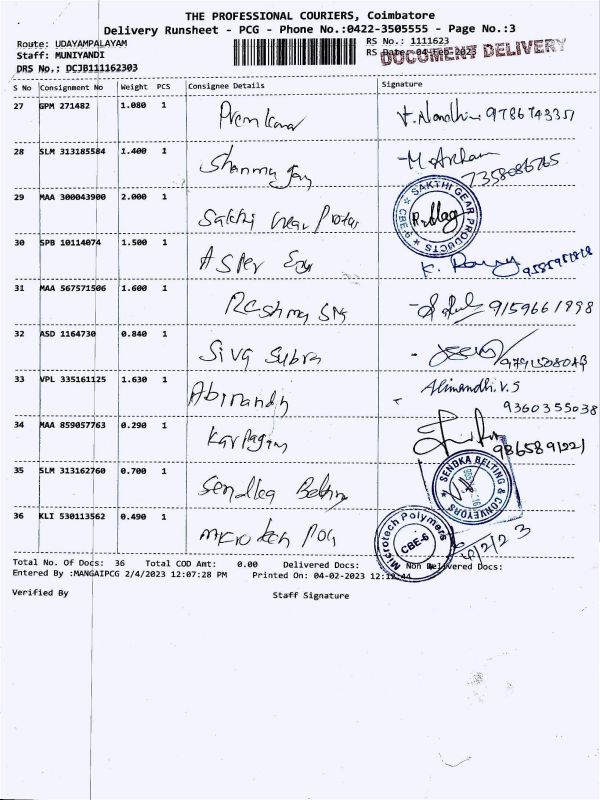 THE PROFESSIONAL COURIERS, Coimbatore
Delivery Runsheet - PCG - Phone No.:0422-3505555 - Page No.:3
Route: UDAYAMPALAYAM
Staff: MUNIYANDI
DRS No.: DCJB111162303
RS No.: 1111623
RS Date: 04-Feb-2023
DOCUMENT DELIVERY
S No Consignment No Weight PCS Consignee Details Signature
27 GPM 271482 1.080 1 Prem kumar 9786743351
28 SLM 313185584 1.400 1 7358086765
29 MAA 300043900 2.000 1 Sakthi Gear
SAKTHI GEAR PRODUCTS CBE-9
30 SPB 10114074 1.500 1
31 MAA 567571506 1.600 1 Reshma 9159661998
32 ASD 1164730 0.840 1 Siva Subra
33 VPL 335161125 1.630 1 Abinandh V.S
9360355038
34 MAA 859057763 0.290 1 Karpagam
35 SLM 313162760 0.700 1 Sendka Belting
SENDKA BELTING & CONVEYORS
36 KLI 530113562 0.490 1 Microtech Pol
Microtech Polymers CBE-6 4/2/23
Total No. Of Docs: 36 Total COD Amt: 0.00 Delivered Docs: Non Delivered Docs:
Entered By :MANGAIPCG 2/4/2023 12:07:28 PM Printed On: 04-02-2023
Verified By Staff Signature